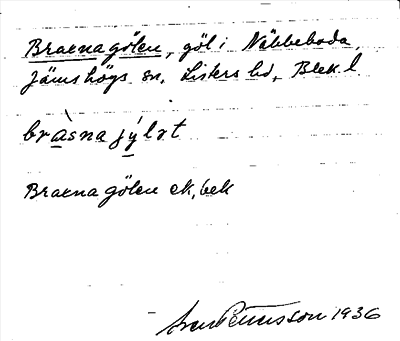 Braknagölen, göl i Näbbeboda,
Jämshögs sn, Listers hd, Blek. l
bràsnajýlṛt
Braknagölen ek, bek
Sven Pettersson 1936